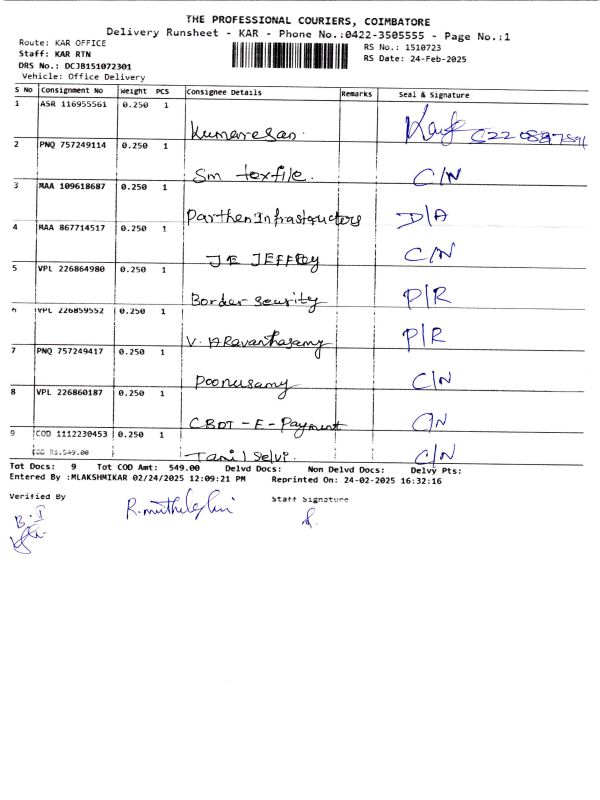 THE PROFESSIONAL COURIERS, COIMBATORE
Delivery Runsheet - KAR - Phone No.:0422-3505555 - Page No.:1
Route: KAR OFFICE
RS No.: 1510723
Staff: KAR RTN
RS Date: 24-Feb-2025
DRS No.: DCJB151072301
Vehicle: Office Delivery
S No Consignment No Weight PCS Consignee Details Remarks Seal & Signature
1 ASR 116955561 0.250 1
Kumaresan.
2 PNQ 757249114 0.250 1
Sm texfile. C/N
3 MAA 109618687 0.250 1
Parthen Infrastructors D/A
4 MAA 867714517 0.250 1
JE JEFFROY C/N
5 VPL 226864980 0.250 1
Border security P/R
6 VPL 226859552 0.250 1
V. ARavanthasamy P/R
7 PNQ 757249417 0.250 1
Poonusamy C/N
8 VPL 226860187 0.250 1
CBDT - E - Payment C/N
9 COD 1112230453 0.250 1
COD Rs.549.00
Tamil selvi. C/N
Tot Docs: 9 Tot COD Amt: 549.00 Delvd Docs: Non Delvd Docs: Delvy Pts:
Entered By :MLAKSHMIKAR 02/24/2025 12:09:21 PM Reprinted On: 24-02-2025 16:32:16
Verified By
Staff Signature